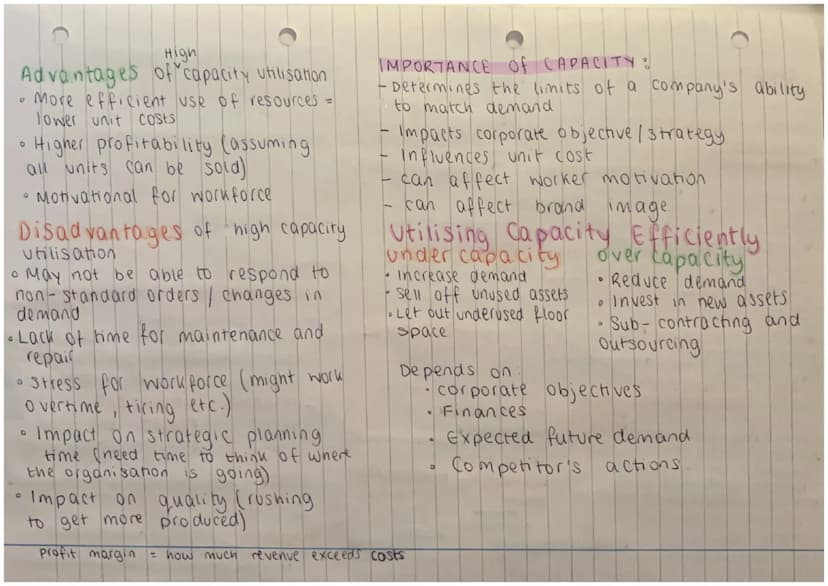 Advantages of High capacity utilisation
• More efficient use of resources =
lower unit costs
• Higher profitability (assuming
all units can be sold)
• Motivational for workforce
Disadvantages of high capacity
utilisation
• May not be able to respond to
non-standard orders / changes in
demand
• Lack of time for maintenance and
repair
• Stress for workforce (might work
overtime, tiring etc.)
• Impact on strategic planning
time (need time to think of where
the organisation is going)
• Impact on quality (rushing
to get more produced)
IMPORTANCE OF CAPACITY:
- Determines the limits of a company's ability
to match demand
- Impacts corporate objective/strategy
- Influences unit cost
- can affect worker motivation
- can affect brand image
Utilising Capacity Efficiently
under capacity
• increase demand
• sell off unused assets
• Let out underused floor
space
over capacity
• Reduce demand
• Invest in new assets
• Sub-contracting and
outsourcing
Depends on:
• corporate objectives
• Finances
• Expected future demand
• Competitor's actions
profit margin = how much revenue exceeds costs